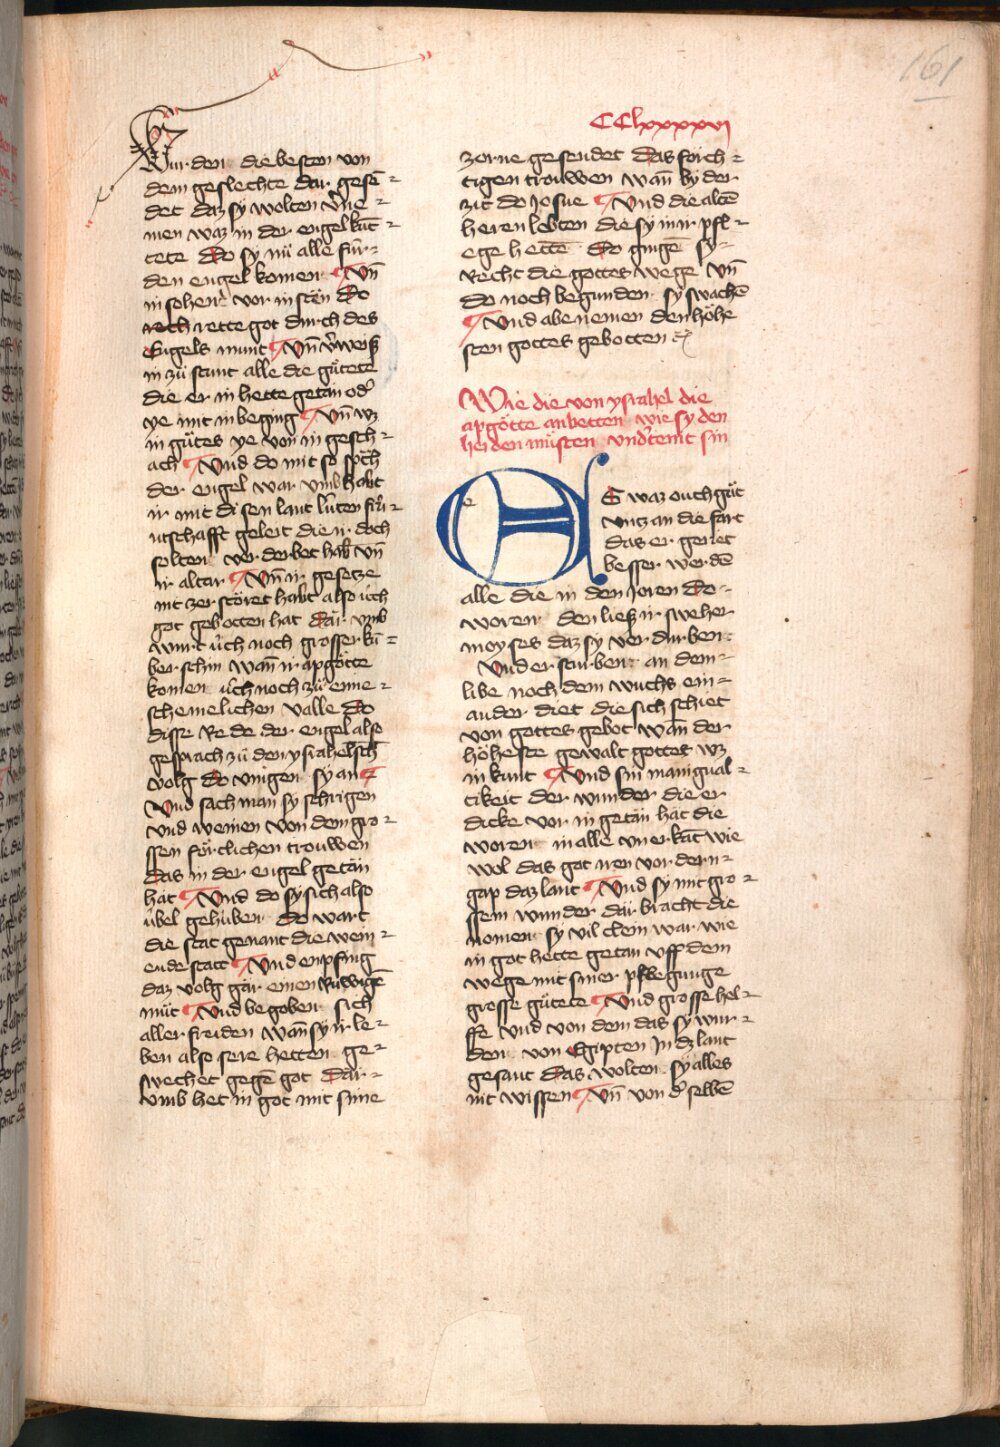 161
CClxxxxvi
Wurden die besten von
dem geslechte dar gesē-
det daz sy wolten v̄ne-
men waz in der engel kūt-
tete do sy nü alle für-
den engel komen ¶ Vn̄
in sohent vor in stan do
rech rette got durch des
Engels munt ¶ Vn̄ v̄weiß
in zü stunt alle die gütete
die er in hette getan od̛
ye mit in beging ¶ Vn̄ wz
in gütes ye von in gesch-
ach ¶ Und do mit so sp̄ch
der engel war vmb habt
ir mit disen lant lüten frü-
ntschafft geleit die ir doch
solten verderbet hab̄ vn̄
ir altar ¶ Vn̄ ir gesetze
nit zerstöret habt also üch
got gebotten hat dar vmb
wurt üch noch grosser kū-
ber schin wan̄ ir apgötte
komen üch noch zü eine-
schemelichen valle do
disse Rede der engel also
gesprach zü den ysrahelsch̄
volg do vingen sy an ¶
Und sach man sy schrigen
vnd weinen von dem gro-
ssen förclichen trouwen
das in der engel getan
hat ¶ Und do sy sich also
übel gehüben do wart
die stat genant die wein-
ende statt ¶ Und enpfing
daz volg gar einen Rüwigē
müt ¶ Und begoben sich
aller freiden wan̄ sy ir le-
ben also sere hetten ge-
swechet gegē got dar-
vmb het in got mit sime
zorne gesendet das förch-
tigen trouwen wan̄ by der
zit do Josue ¶ Und die altē
heren lebten die sy in ir pfl-
ege hettē do gingē sy-
Recht die gottes wege vn̄
do noch begunden sy swachē
¶ Und abe nemen den höhe
sten gottes gebotten
Wie die von ysrahel die
apgötte anbetten wie sy den
heiden müsten vndertenit sin
e
ES waz ouch güt
vntz an die fart
das er geriet
besser werdē
alle die in den Joren do-
woren den ließ ir sweher
moyses daz sy verdurben-
Und ersturben an dem-
libe noch dem wuchs ein-
ander diet die sich schiet
von gottes gebot wan̄ der
höheste gewalt gottes wz
in kunt ¶ Und sin manigual-
tikeit der wunder die er
dicke vor in getan hat die
woren in alle vnerkāt wie
wol das got iren vordern-
gap daz lant ¶ Und sy mit gro-
ssem wunder dar bracht die
nomen sy vil clein war wie
in got hette getan vff dem
wege mit siner pflegunge
grosse gütete ¶ Und grosse hel-
ffe vnd von dem das sy wur-
den von Egipten In dz lant
gesant das wolten sy alles
nit wissen ¶ Vn̄ von d̛ selbē